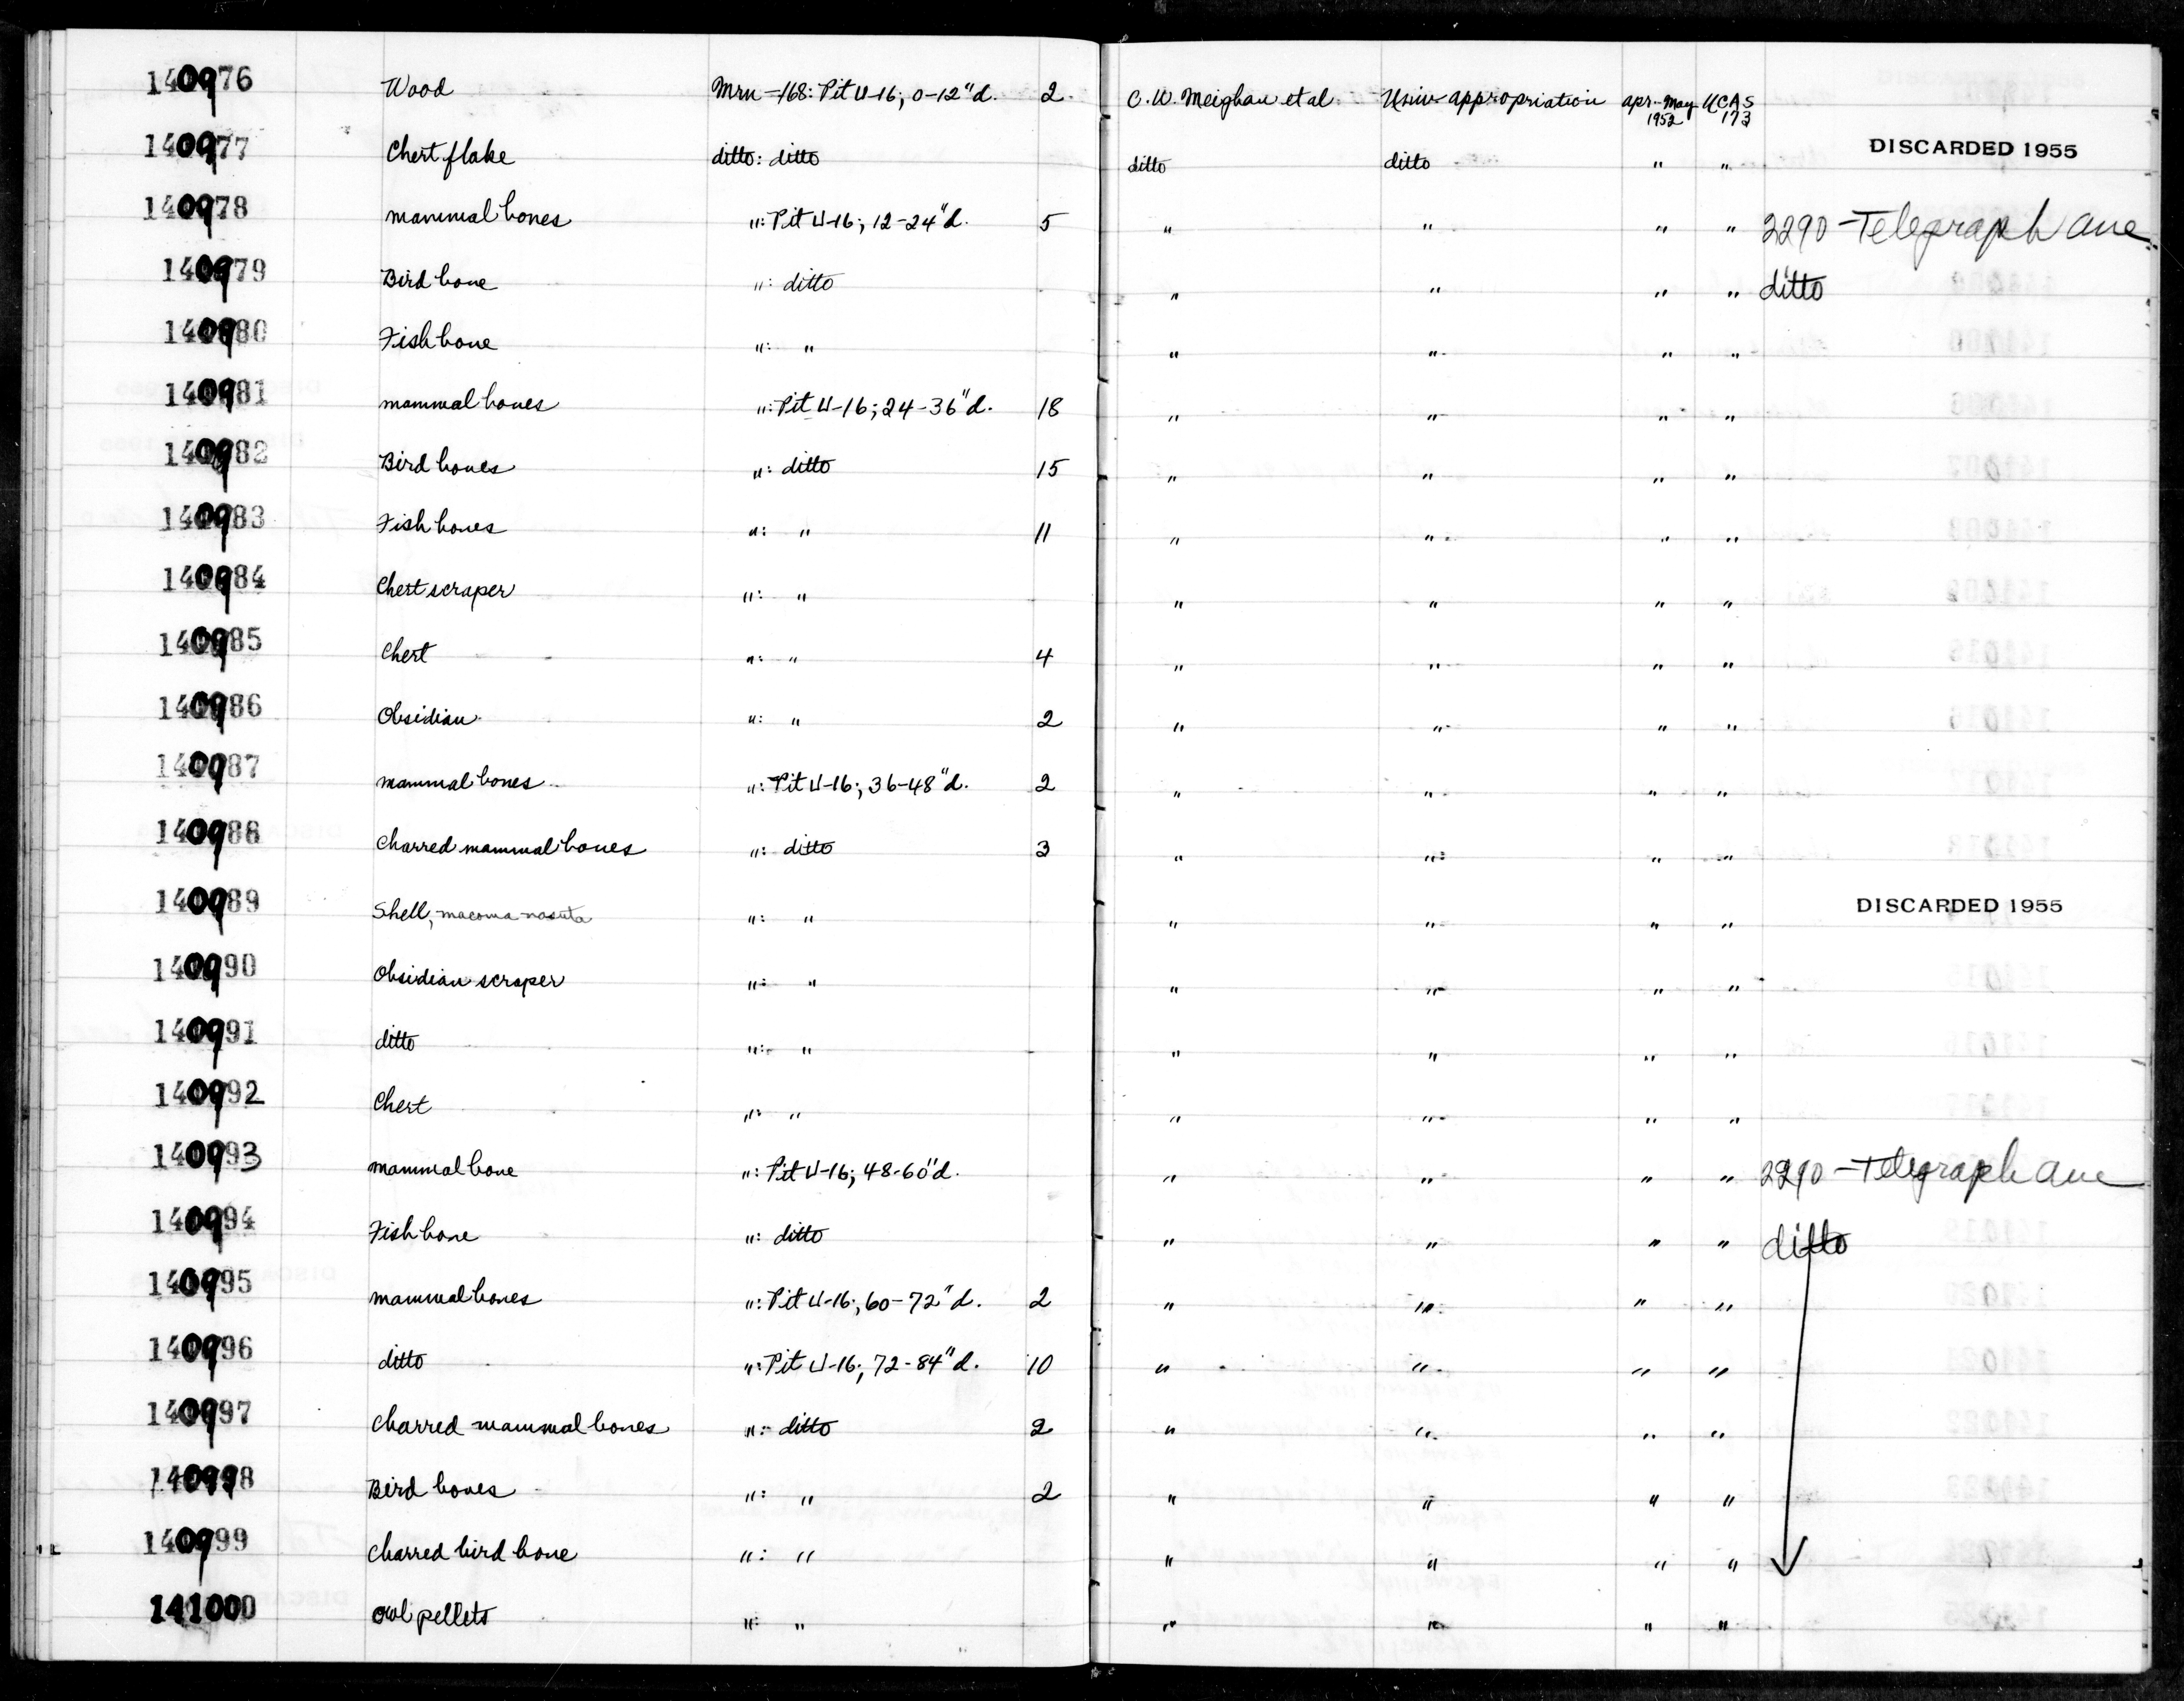 140976 Wood Mrn-168: Pit U-16; 0-12"d. 2 C.W. Meighan et al Univ appropriation apr-May 1952 UCAS 173
140977 Chert flake ditto: ditto ditto ditto " " DISCARDED 1955
140978 mammal bones ": Pit U-16; 12-24"d. 5 " " " " 2290-Telegraph Ave
140979 Bird bone ": ditto " " " " ditto
140980 Fish bone ": " " " " "
140981 mammal bones ": Pit U-16; 24-36"d. 18 " " " "
140982 Bird bones ": ditto 15 " " " "
140983 Fish bones ": " 11 " " " "
140984 Chert scraper ": " " " " "
140985 Chert ": " 4 " " " "
140986 Obsidian ": " 2 " " " "
140987 mammal bones ": Pit U-16; 36-48"d. 2 " " " "
140988 Charred mammal bones ": ditto 3 " " " "
140989 Shell, macoma nasuta ": " " " " " DISCARDED 1955
140990 Obsidian scraper ": " " " " "
140991 ditto ": " " " " "
140992 Chert ": " " " " "
140993 mammal bone ": Pit U-16; 48-60"d. " " " " 2290-Telegraph Ave
140994 Fish bone ": ditto " " " " ditto
140995 mammal bones ": Pit U-16; 60-72"d. 2 " " " "
140996 ditto ": Pit U-16; 72-84"d. 10 " " " "
140997 Charred mammal bones ": ditto 2 " " " "
140998 Bird bones ": " 2 " " " "
140999 Charred bird bone ": " " " " "
141000 owl pellets ": " " " " "